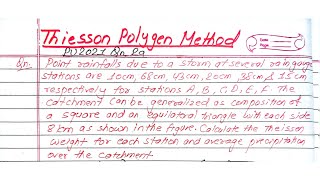 Thiesson Polygen Method
PU2021 Qn. 2a
Qn. Point rainfalls due to a storm at several raingauge
stations are 10cm, 68cm, 43cm, 20cm, 38cm & 15cm
respectively for stations A, B, C, D, E, F. The
catchment can be generalized as composition of
a square and an equilateral triangle with each side
8km as shown in the figure. Calculate the theisson
weight for each station and average precipitation
over the catchment.